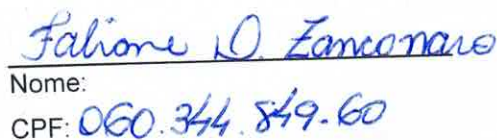 Fabiane D. Zanconaro
Nome:
CPF: 060.344.849.60